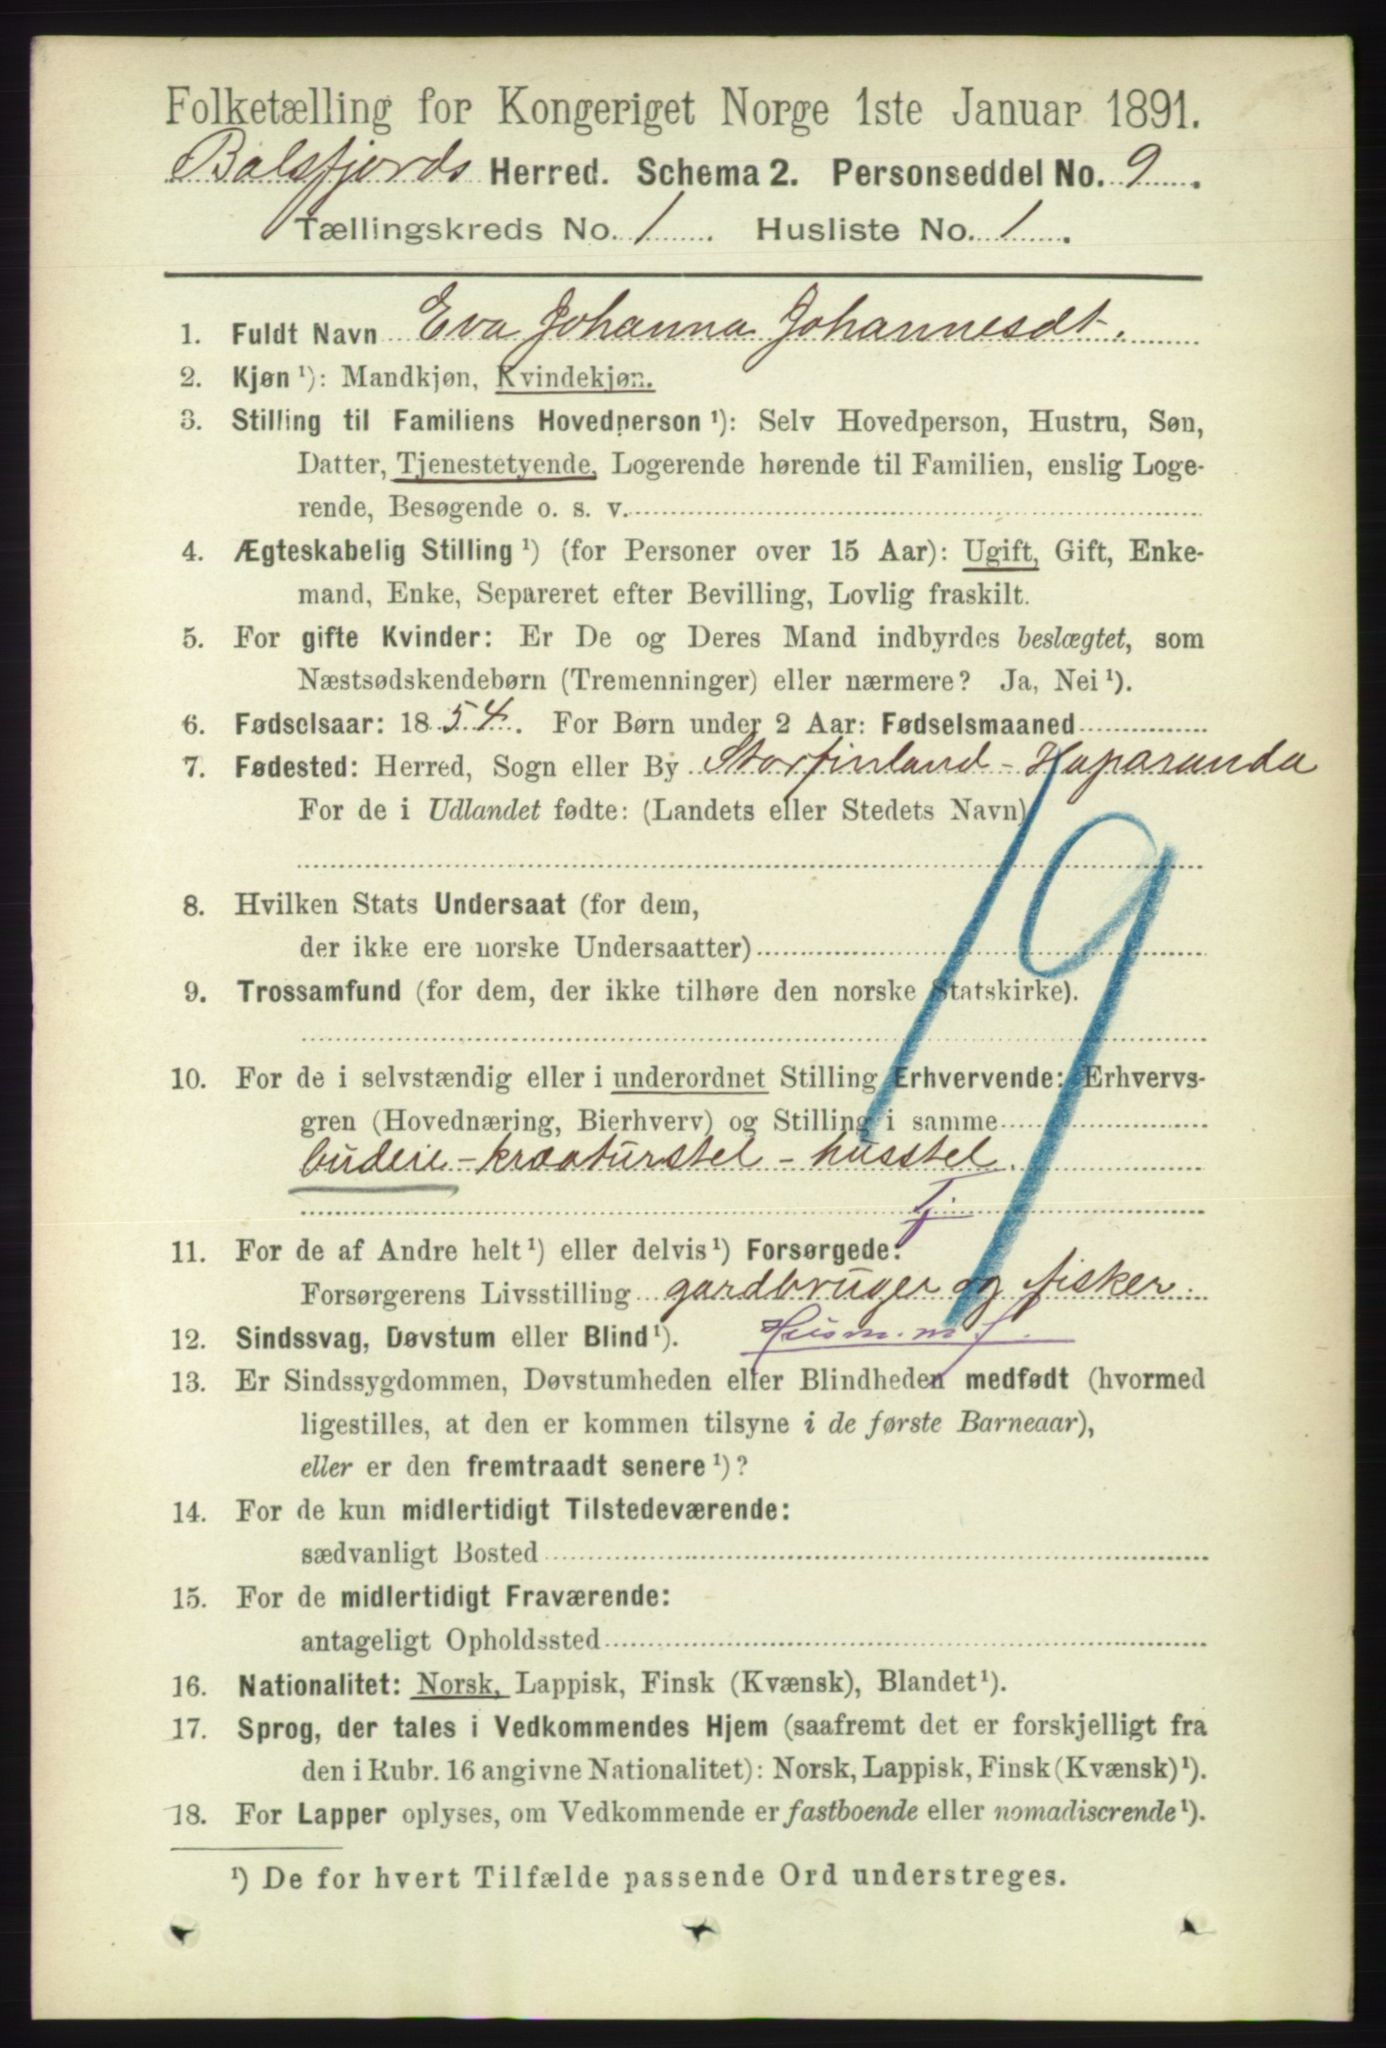 Folketælling for Kongeriget Norge 1ste Januar 1891.
Balsfjords Herred. Schema 2. Personseddel No. 9.
Tællingskreds No. 1. Husliste No. 1.
1. Fuldt Navn Eva Johanna Johannesdt.
2. Kjøn ¹): Mandkjøn, Kvindekjøn.
3. Stilling til Familiens Hovedperson ¹): Selv Hovedperson, Hustru, Søn,
Datter, Tjenestetyende, Logerende hørende til Familien, enslig Loge-
rende, Besøgende o. s. v.
4. Ægteskabelig Stilling ¹) (for Personer over 15 Aar): Ugift, Gift, Enke-
mand, Enke, Separeret efter Bevilling, Lovlig fraskilt.
5. For gifte Kvinder: Er De og Deres Mand indbyrdes beslægtet, som
Næstsødskendebørn (Tremenninger) eller nærmere? Ja, Nei ¹).
6. Fødselsaar: 1854. For Børn under 2 Aar: Fødselsmaaned
7. Fødested: Herred, Sogn eller By Storfinland - Haparanda
For de i Udlandet fødte: (Landets eller Stedets Navn)
19
8. Hvilken Stats Undersaat (for dem,
der ikke ere norske Undersaatter)
9. Trossamfund (for dem, der ikke tilhøre den norske Statskirke).
10. For de i selvstændig eller i underordnet Stilling Erhvervende: Erhvervs-
gren (Hovednæring, Bierhverv) og Stilling i samme
budeie - kreaturstel - husstel.
Tj.
11. For de af Andre helt ¹) eller delvis ¹) Forsørgede:
Forsørgerens Livsstilling gardbruger og fisker.
12. Sindssvag, Døvstum eller Blind ¹). Husm. m. J.
13. Er Sindssygdommen, Døvstumheden eller Blindheden medfødt (hvormed
ligestilles, at den er kommen tilsyne i de første Barneaar),
eller er den fremtraadt senere ¹)?
14. For de kun midlertidigt Tilstedeværende:
sædvanligt Bosted
15. For de midlertidigt Fraværende:
antageligt Opholdssted
16. Nationalitet: Norsk, Lappisk, Finsk (Kvænsk), Blandet ¹).
17. Sprog, der tales i Vedkommendes Hjem (saafremt det er forskjelligt fra
den i Rubr. 16 angivne Nationalitet): Norsk, Lappisk, Finsk (Kvænsk) ¹).
18. For Lapper oplyses, om Vedkommende er fastboende eller nomadiserende ¹).
¹) De for hvert Tilfælde passende Ord understreges.